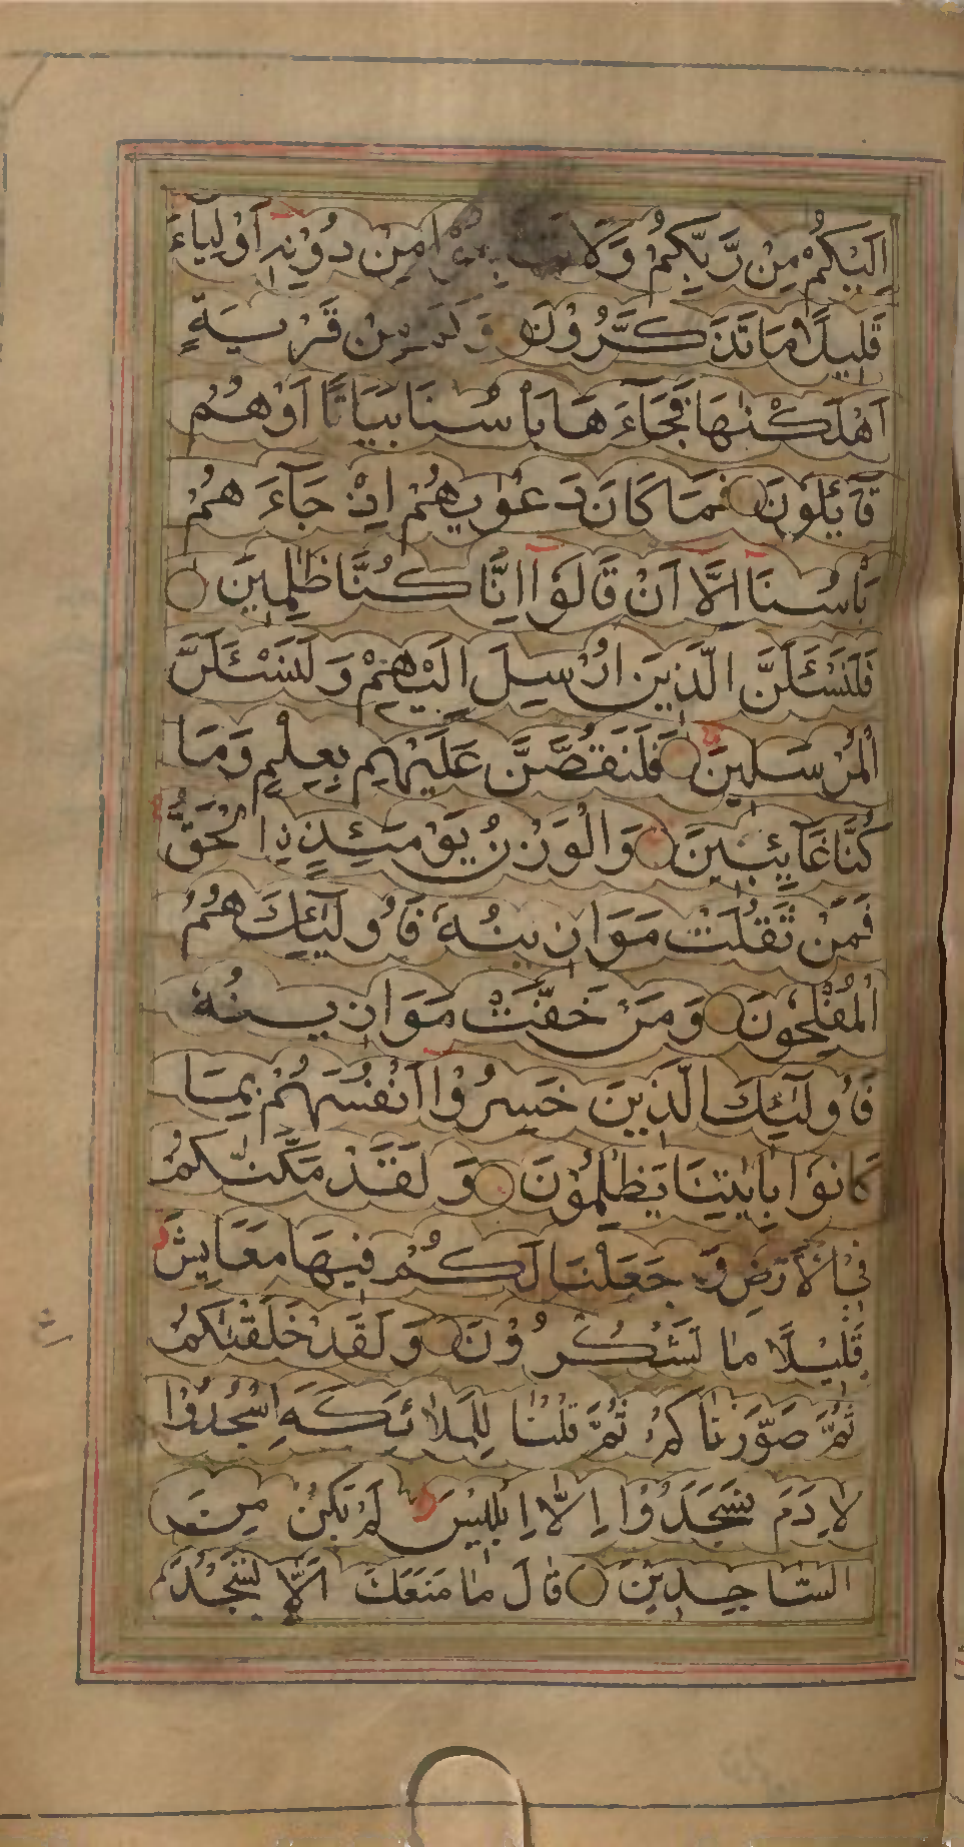 اِلَيْكُمْ مِنْ رَّبِّكُمْ وَلَا تَتَّبِعُوْا مِنْ دُوْنِهٖ اَوْلِيَآءَ
قَلِيلًا مَا تَذَكَّرُوْنَ وَكَمْ مِنْ قَرْيَةٍ
اَهْلَكْنٰهَا فَجَآءَهَا بَأْسُنَا بَيَاتًا اَوْ هُمْ
قَآئِلُوْنَ فَمَا كَانَ دَعْوٰىهُمْ اِذْ جَآءَهُمْ
بَأْسُنَا اِلَّا اَنْ قَالُوْا اِنَّا كُنَّا ظٰلِمِيْنَ
فَلَنَسْـَٔلَنَّ الَّذِيْنَ اُرْسِلَ اِلَيْهِمْ وَلَنَسْـَٔلَنَّ
الْمُرْسَلِيْنَ فَلَنَقُصَّنَّ عَلَيْهِمْ بِعِلْمٍ وَمَا
كُنَّا غَآئِبِيْنَ وَالْوَزْنُ يَوْمَئِذِ ِۨالْحَقُّ
فَمَنْ ثَقُلَتْ مَوَازِيْنُهٗ فَاُولٰٓئِكَ هُمُ
الْمُفْلِحُوْنَ وَمَنْ خَفَّتْ مَوَازِيْنُهٗ
فَاُولٰٓئِكَ الَّذِيْنَ خَسِرُوْا اَنْفُسَهُمْ بِمَا
كَانُوْا بِاٰيٰتِنَا يَظْلِمُوْنَ وَلَقَدْ مَكَّنّٰكُمْ
فِى الْاَرْضِ وَجَعَلْنَا لَكُمْ فِيهَا مَعَايِشَ
قَلِيْلًا مَا تَشْكُرُوْنَ وَلَقَدْ خَلَقْنٰكُمْ
ثُمَّ صَوَّرْنَاكُمْ ثُمَّ قُلْنَا لِلْمَلَائِكَةِ اسْجُدُوْا
لِاٰدَمَ فَسَجَدُوْا اِلَّا اِبْلِيْسَ لَمْ يَكُنْ مِنَ
السَّاجِدِيْنَ قَالَ مَا مَنَعَكَ اَلَّا تَسْجُدَ